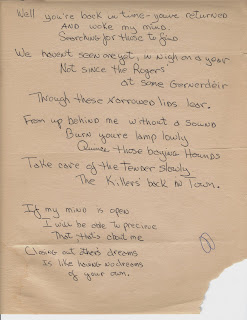 Well you're back in tune - you're returned
AND woke my mind.
Searching for those to find
We haven't seen one yet, in nigh on a year
Not since the Rogers
at some
Through these borrowed lips lear.
From up behind me without a sound
Burn you're lamp lowly
those baying Hounds
Take care of the Tender slowly
The Killers' back in Town.
If my mind is open
I will be able to precieve
That, that's about me
Closing out others dreams
Is like having no dreams
of your own.